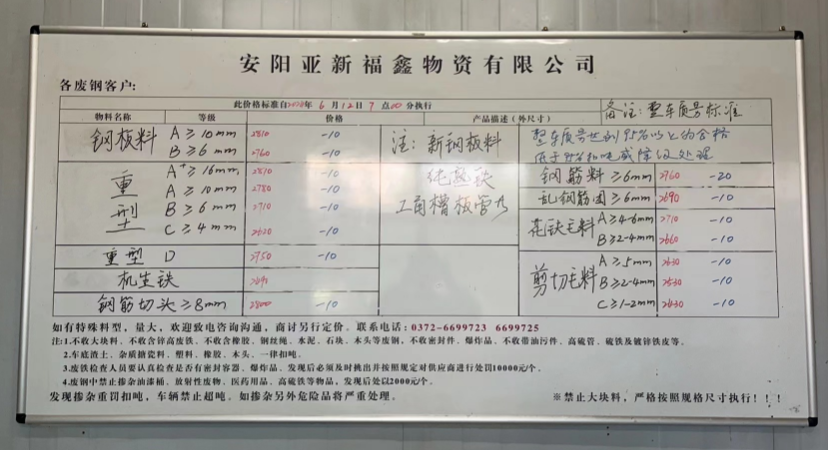 安阳亚新福鑫物资有限公司
各废钢客户:
此价格标准自2020年 6 月 12日 7 点00分执行
备注: 整车质量标准
物料名称 等级 价格 产品描述（外尺寸）
钢板料 A≥10mm 2810 -10
B≥6mm 2760 -10
注: 新钢板料
整车质量达到95%以上的合格
低于95%扣吨或降级处理
重型 A+≥16mm 2810 -10
A≥10mm 2780 -10
B≥6mm 2710 -10
C≥4mm 2620 -10
纯熟铁
工角槽板管为
钢筋料≥6mm 2760 -20
乱钢筋团≥6mm 2690 -10
花铁毛料 A≥4-6mm 2710 -10
B≥2-4mm 2660 -10
重型 D 2750 -10
机生铁
钢筋切头≥8mm 2800 -10
剪切毛料 A≥5mm 2630 -10
B≥2-4mm 2530 -10
C≥1-2mm 2430 -10
如有特殊料型，量大，欢迎致电咨询沟通，商讨另行定价。联系电话: 0372-6699723 6699725
注:1.不收大块料、不收含锌高废铁、不收含橡胶、钢丝绳、水泥、石块、木头等废钢，不收密封件、爆炸品、不收带油污件、高硫管、硫铁及镀锌铁皮等。
2.车底渣土、杂质搪瓷料、塑料、橡胶、木头、一律扣吨。
3.废铁检查人员要认真检查是否有密封容器、爆炸品、发现后必须及时挑出并按照规定对供应商进行处罚10000元/个。
4.废钢中禁止掺杂油漆桶、放射性废物、医药用品、高硫铁等物品，发现后处以2000元/个。
发现掺杂重罚扣吨，车辆禁止超吨。如掺杂另外危险品将严重处理。
※禁止大块料，严格按照规格尺寸执行！！！